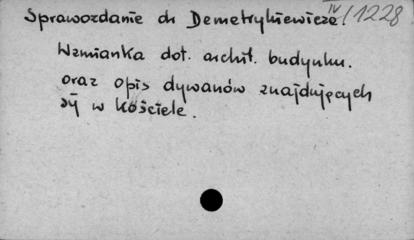 Sprawozdanie dr Demetrykiewicza. IV/1228
Wzmianka dot. archit. budynku.
oraz opis dywanów znajdujęcych
się w Kościele.